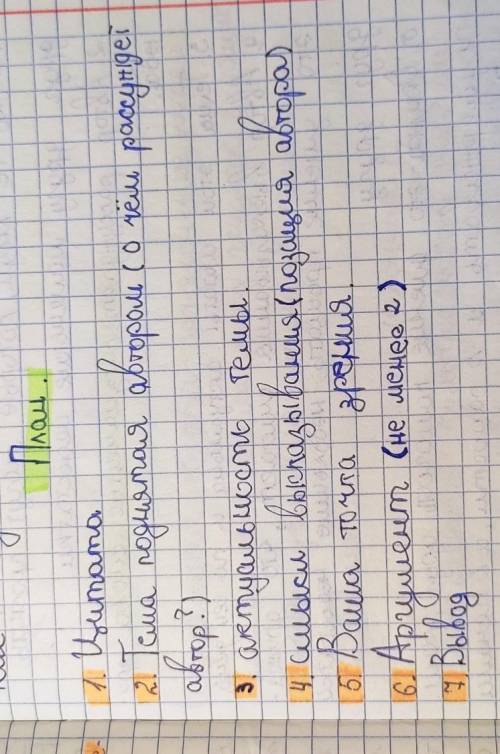 План.
1. Цитата
2. Тема поднятая автором (о чём рассуждет
автор?)
3. актуальность темы.
4. смысл высказывания (позиция автора)
5. Ваша точка зрения.
6. Аргумент (не менее 2)
7. Вывод